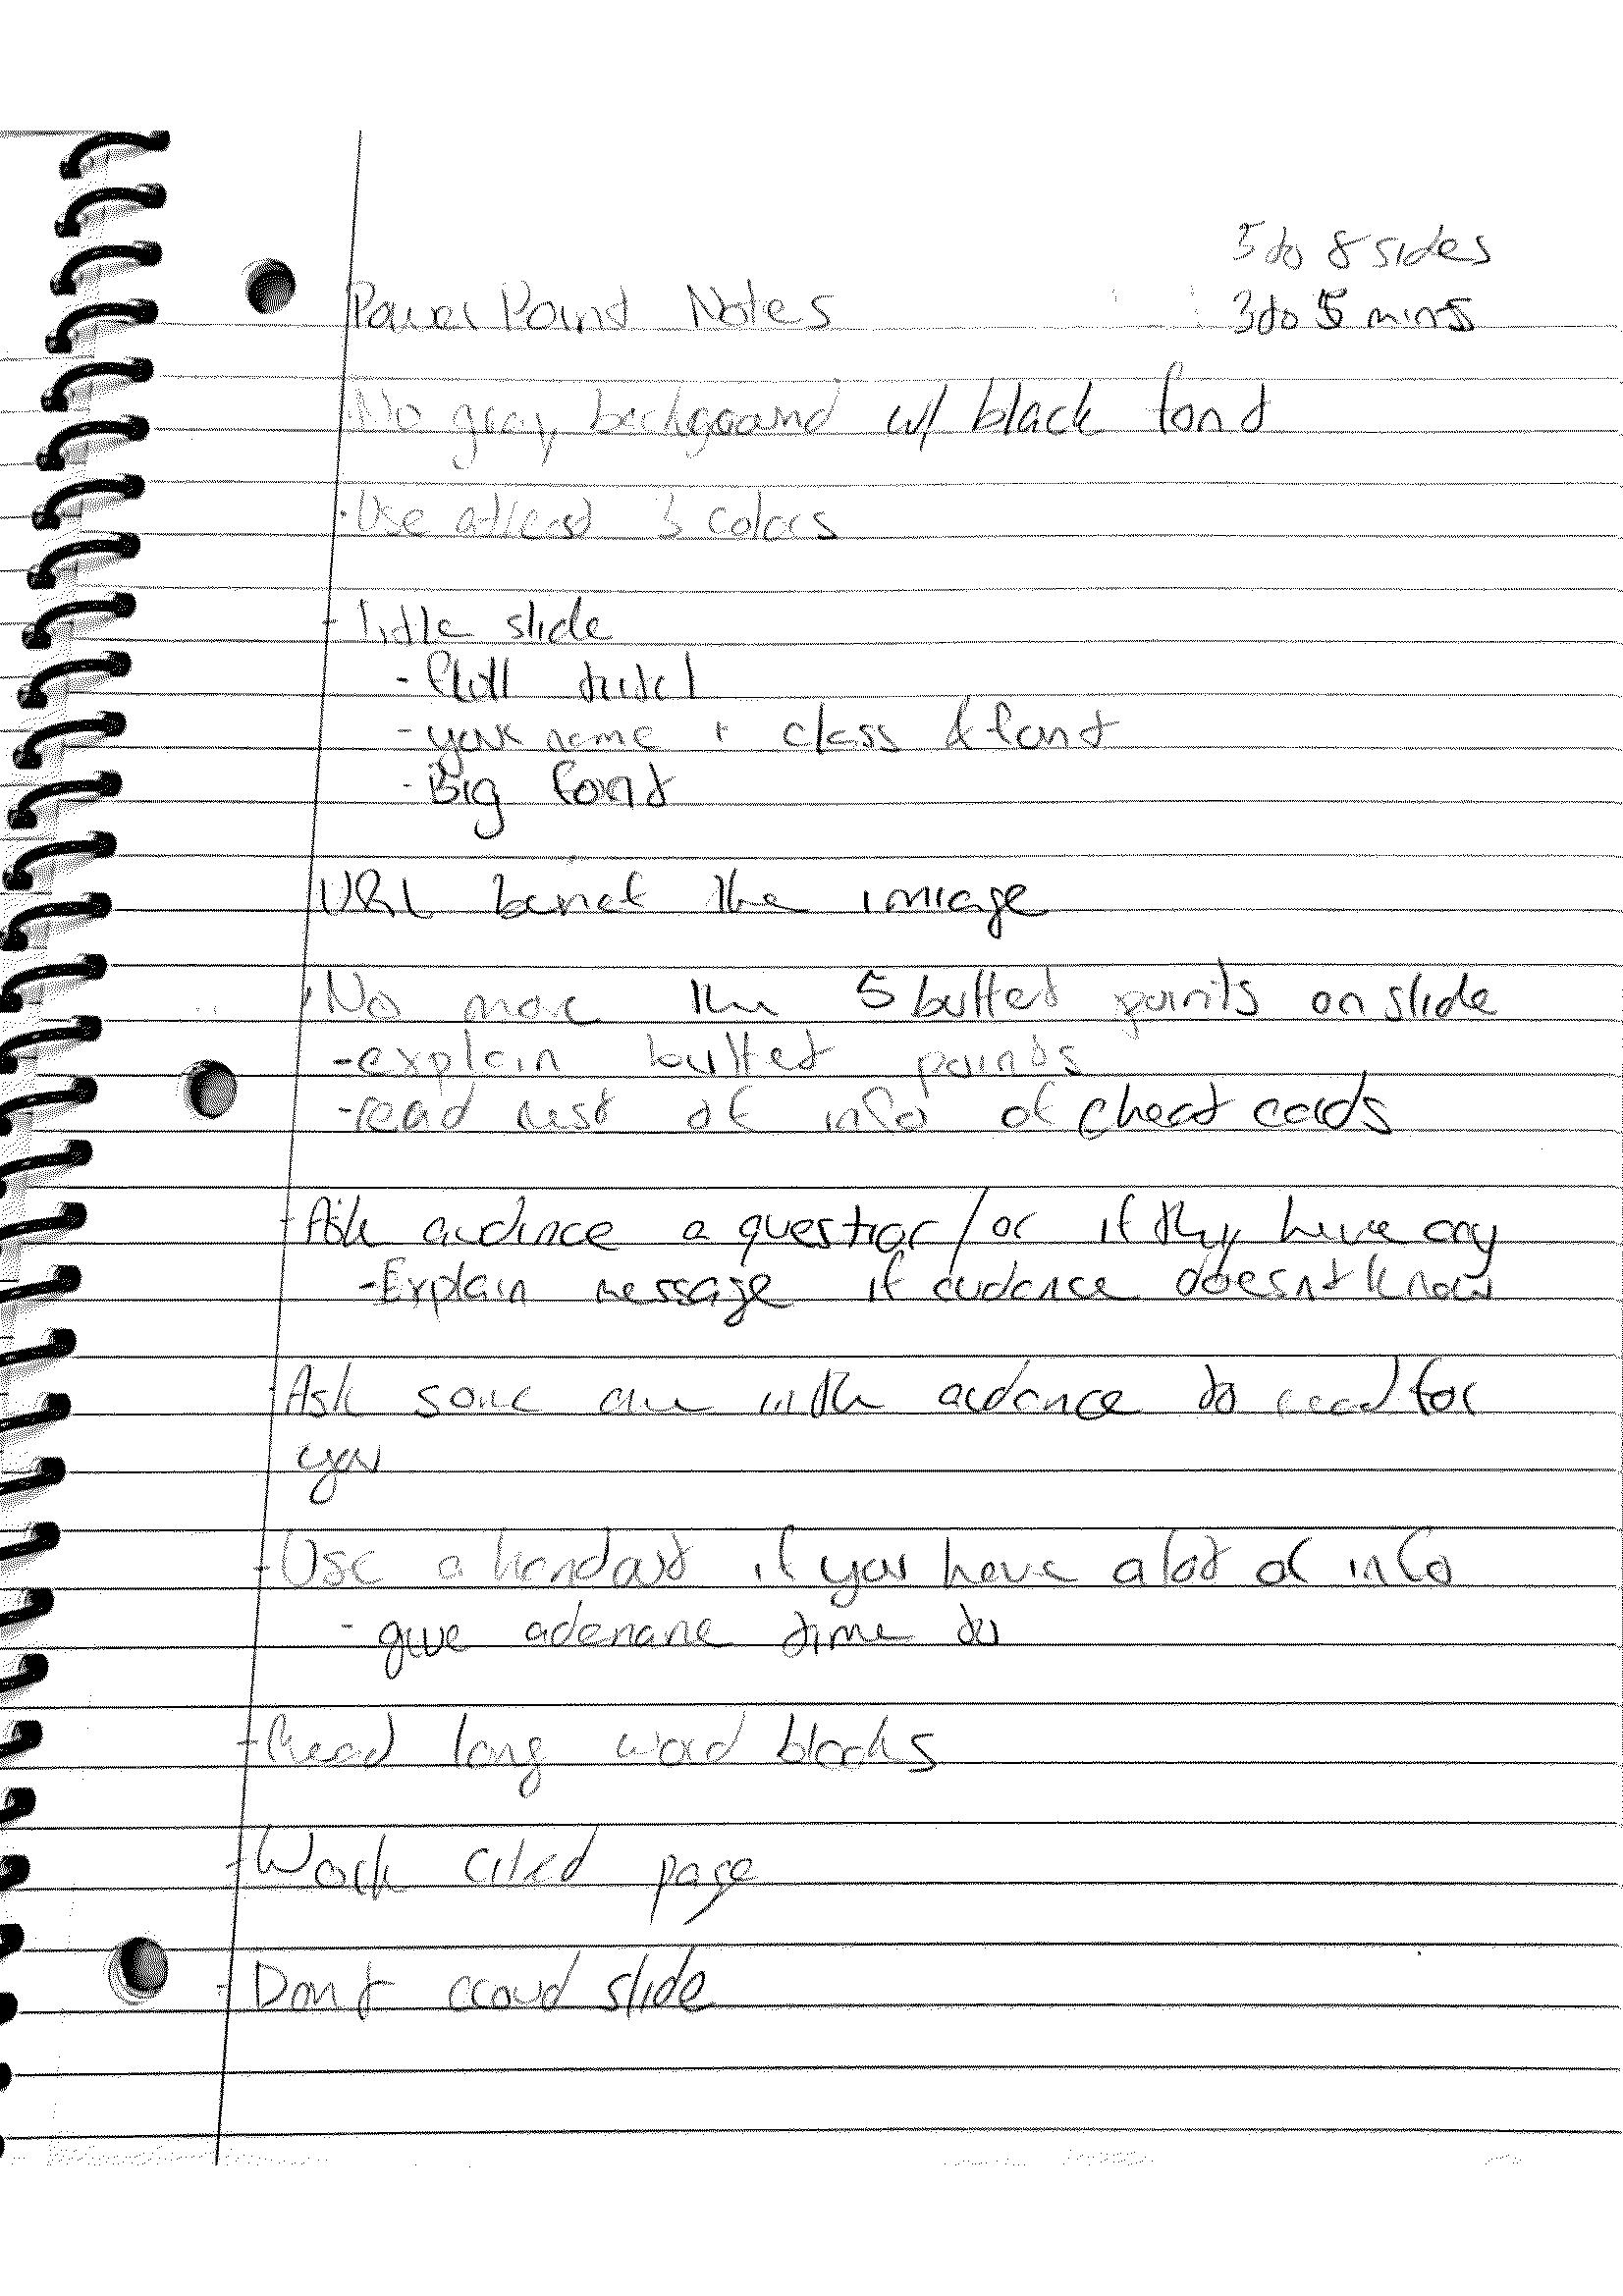 5 to 8 sides
PowerPoint Notes
3 to 5 mins
No gray background w/ black font
· Use atleast 3 colors
- Title slide
- Full
- your name + class & font
- Big font
URL the image
No more the 5 bullet points on slide
- explain bullet points
- read rest of info of cheat cards
- Ask audince a question/or if they have any
- Explain message if audance doesnt know
· Ask some one in the audance to read for
you
- Use a handout if you have a lot of info
- give time to
- Read long word blocks
- Work cited page
- Dont croud slide